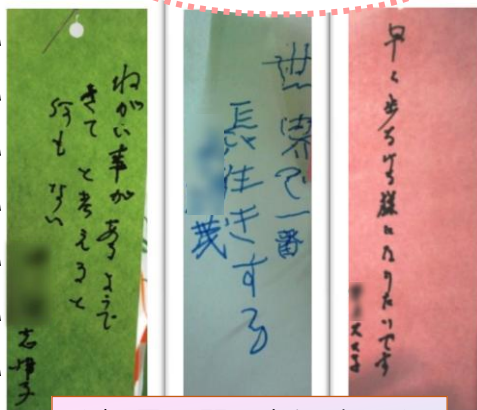 ねがい事が あるようで
さて と考えると
何も ない
志津子
世界で一番
長生きする
茂
早く歩ける様になりたいです